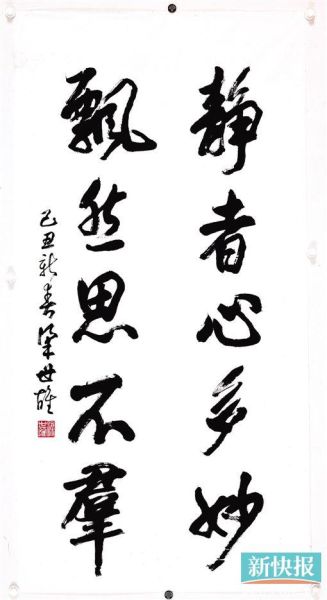 静者心多妙
飘然思不群
己丑新春梁世雄
新快报